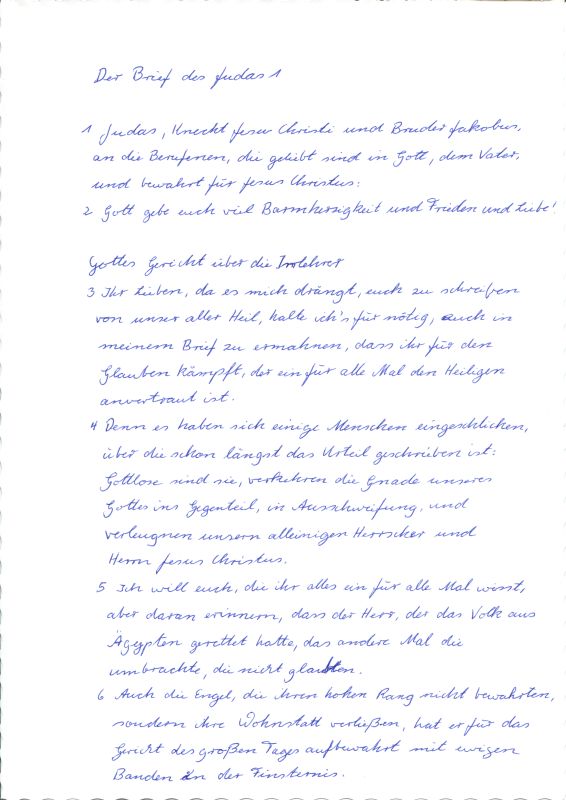 Der Brief des Judas 1
1 Judas, Knecht Jesu Christi und Bruder Jakobus,
an die Berufenen, die geliebt sind in Gott, dem Vater,
und bewahrt für Jesus Christus:
2 Gott gebe euch viel Barmherzigkeit und Frieden und Liebe!
Gottes Gericht über die Irrlehrer
3 Ihr Lieben, da es mich drängt, euch zu schreiben
von unser aller Heil, halte ich's für nötig, euch in
meinem Brief zu ermahnen, dass ihr für den
Glauben kämpft, der ein für alle Mal den Heiligen
anvertraut ist.
4 Denn es haben sich einige Menschen eingeschlichen,
über die schon längst das Urteil geschrieben ist:
Gottlose sind sie, verkehren die Gnade unseres
Gottes ins Gegenteil, in Ausschweifung, und
verleugnen unsern alleinigen Herrscher und
Herrn Jesus Christus.
5 Ich will euch, die ihr alles ein für alle Mal wisst,
aber daran erinnern, dass der Herr, der das Volk aus
Ägypten gerettet hatte, das andere Mal die
umbrachte, die nicht glaubten.
6 Auch die Engel, die ihren hohen Rang nicht bewahrten,
sondern ihre Wohnstatt verließen, hat er für das
Gericht des großen Tages aufbewahrt mit ewigen
Banden in der Finsternis.